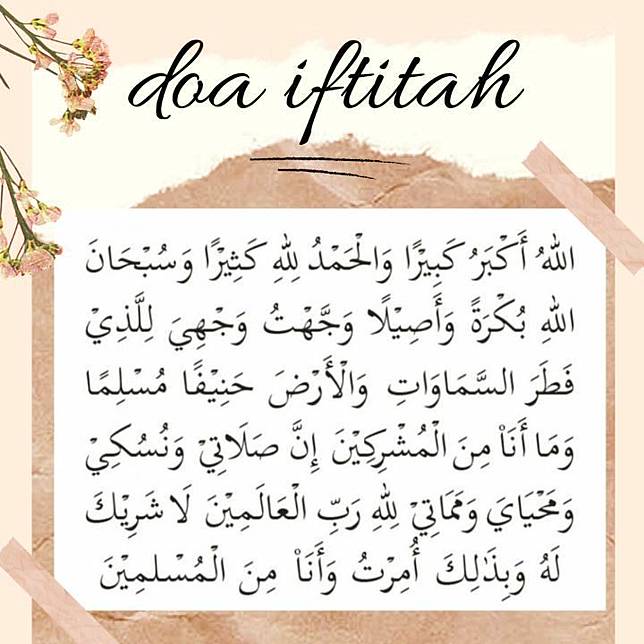 doa iftitah
اللهُ أَكْبَرُ كَبِيْرًا وَالْحَمْدُ لِلهِ كَثِيْرًا وَسُبْحَانَ
اللهِ بُكْرَةً وَأَصِيْلًا وَجَّهْتُ وَجْهِيَ لِلَّذِيْ
فَطَرَ السَّمَاوَاتِ وَالْأَرْضَ حَنِيْفًا مُسْلِمًا
وَمَا أَنَاْ مِنَ الْمُشْرِكِيْنَ إِنَّ صَلَاتِيْ وَنُسُكِيْ
وَمَحْيَايَ وَمَمَاتِيْ لِلهِ رَبِّ الْعَالَمِيْنَ لَا شَرِيْكَ
لَهُ وَبِذٰلِكَ أُمِرْتُ وَأَنَاْ مِنَ الْمُسْلِمِيْنَ